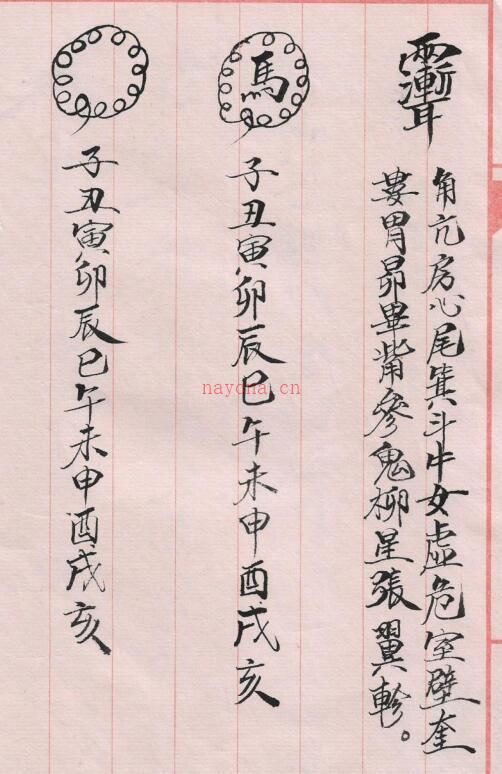 角亢房心尾箕斗牛女虛危室壁奎
婁胃昴畢觜參鬼柳星張翼軫。
馬
子丑寅卯辰巳午未申酉戌亥
子丑寅卯辰巳午未申酉戌亥
nayona.cn